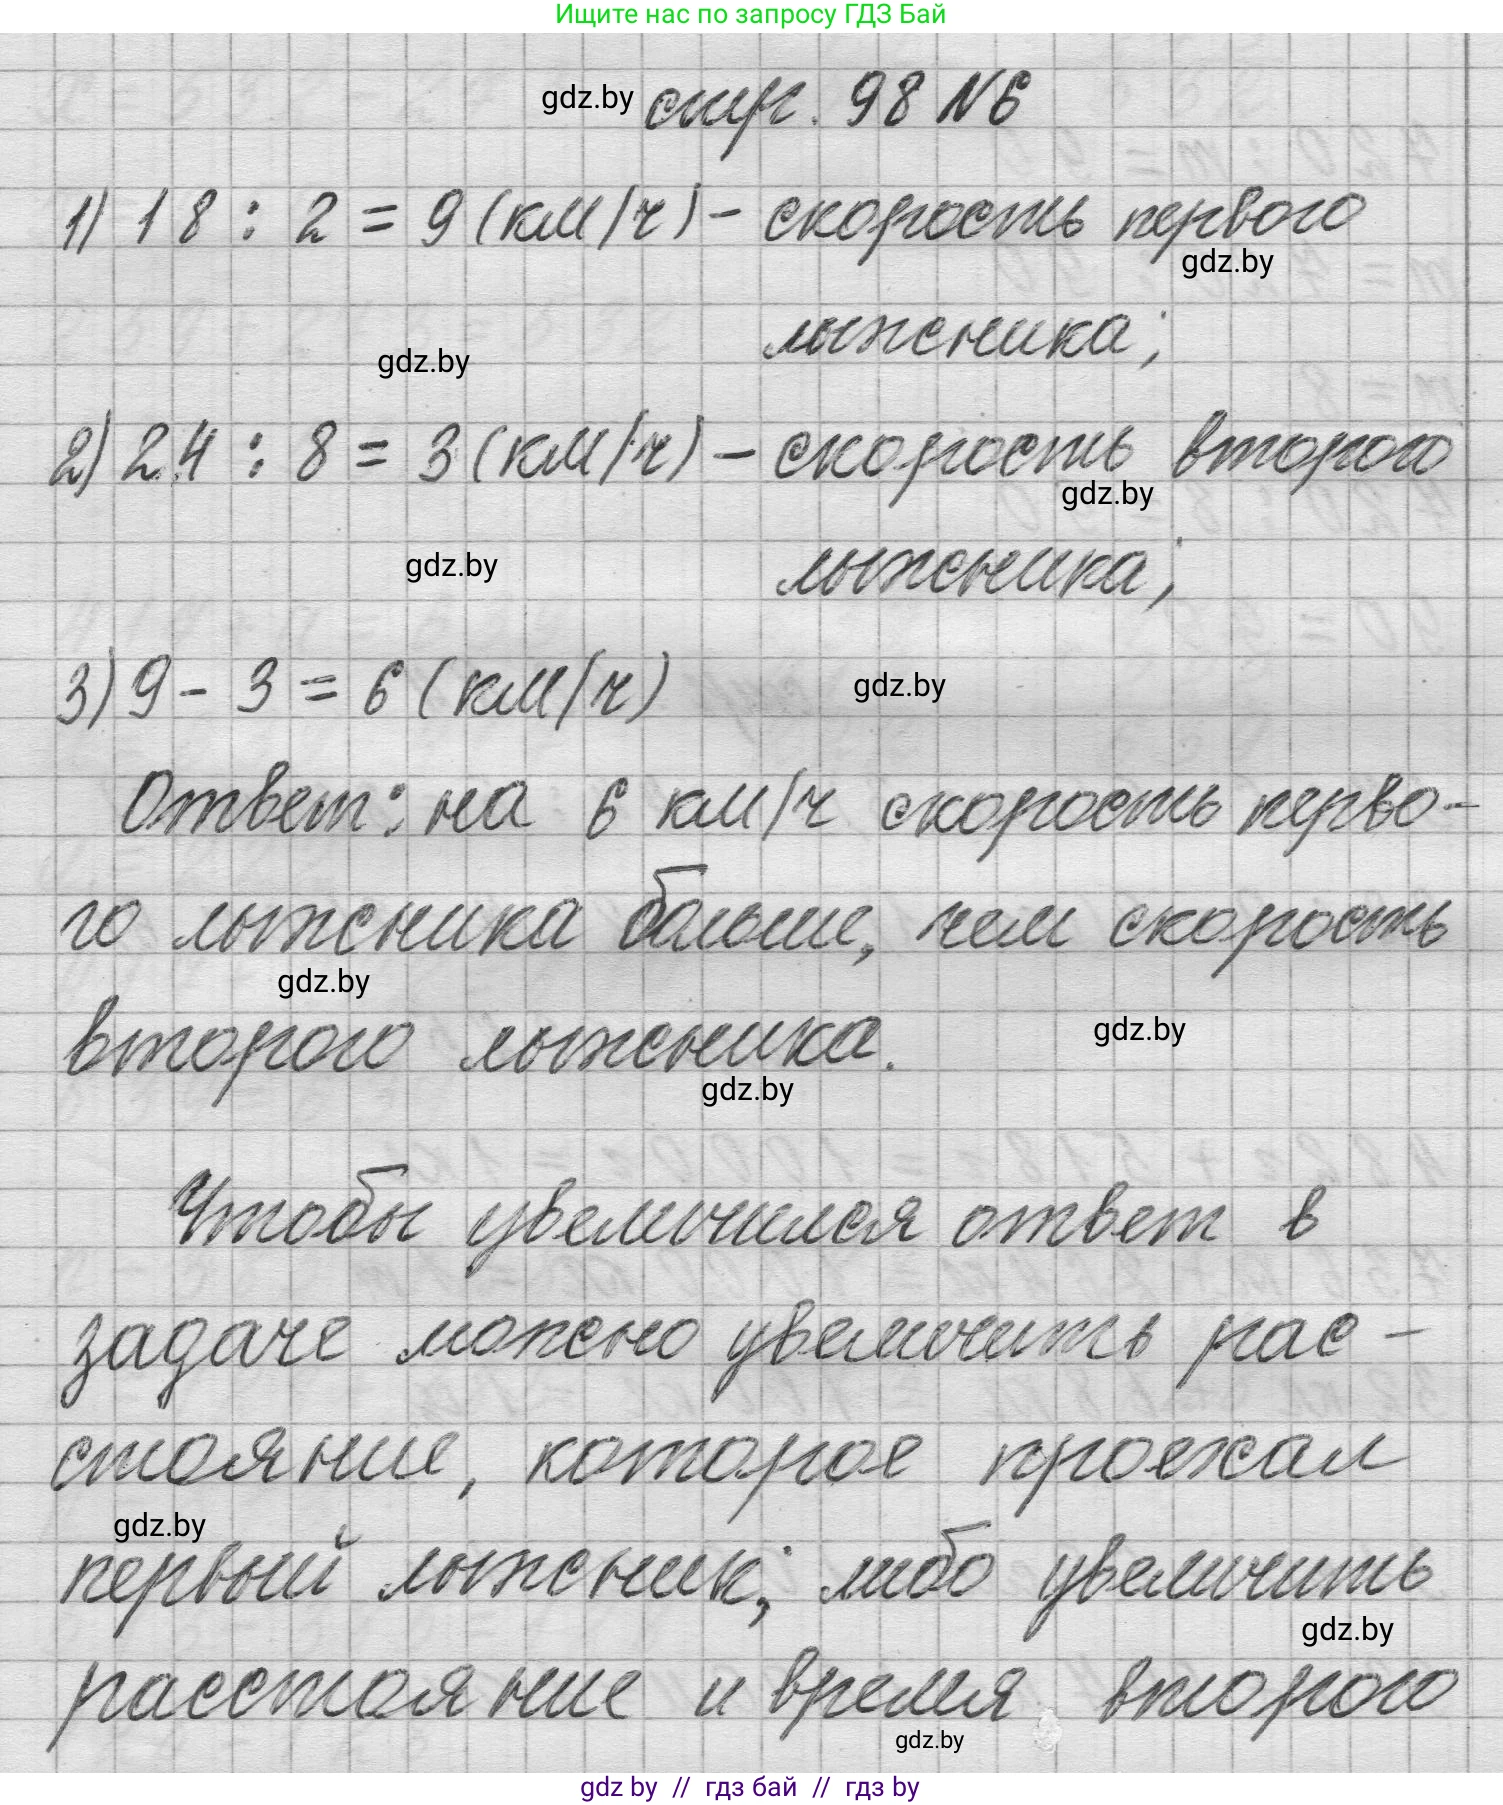 Ищите нас по запросу ГДЗ Бай
gdz.by стр. 98 №6
1) 18 : 2 = 9 (км/ч) - скорость первого
gdz.by
лыжника;
gdz.by
2) 24 : 8 = 3 (км/ч) - скорость второго
gdz.by
gdz.by лыжника;
3) 9 - 3 = 6 (км/ч) gdz.by
Ответ: на 6 км/ч скорость перво-
го лыжника больше, чем скорость
gdz.by
второго лыжника. gdz.by
gdz.by
Чтобы увеличился ответ в
задаче можно увеличить рас-
стояние, которое проехал
gdz.by
первый лыжник; либо увеличить
gdz.by
расстояние и время второго
gdz.by
gdz by // гдз бай // гдз by